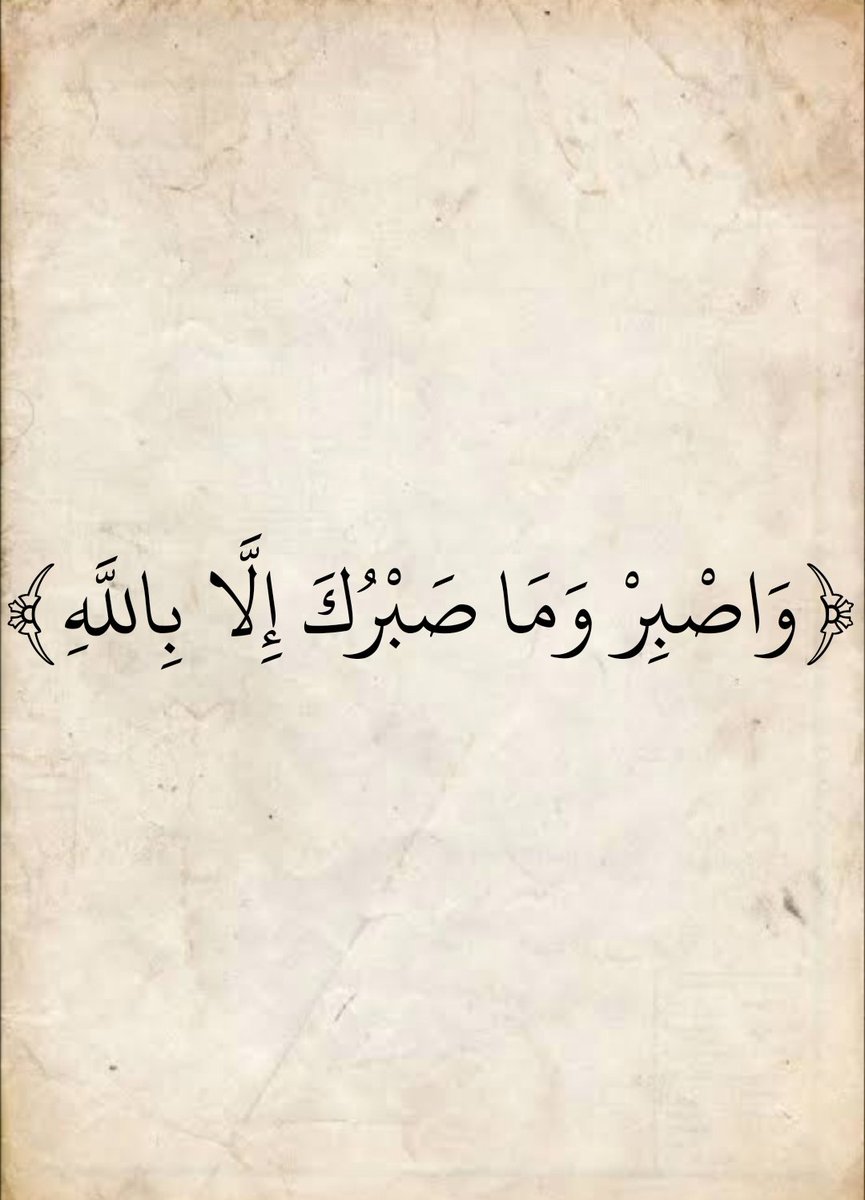 ﴿وَاصْبِرْ وَمَا صَبْرُكَ إِلَّا بِاللَّهِ﴾